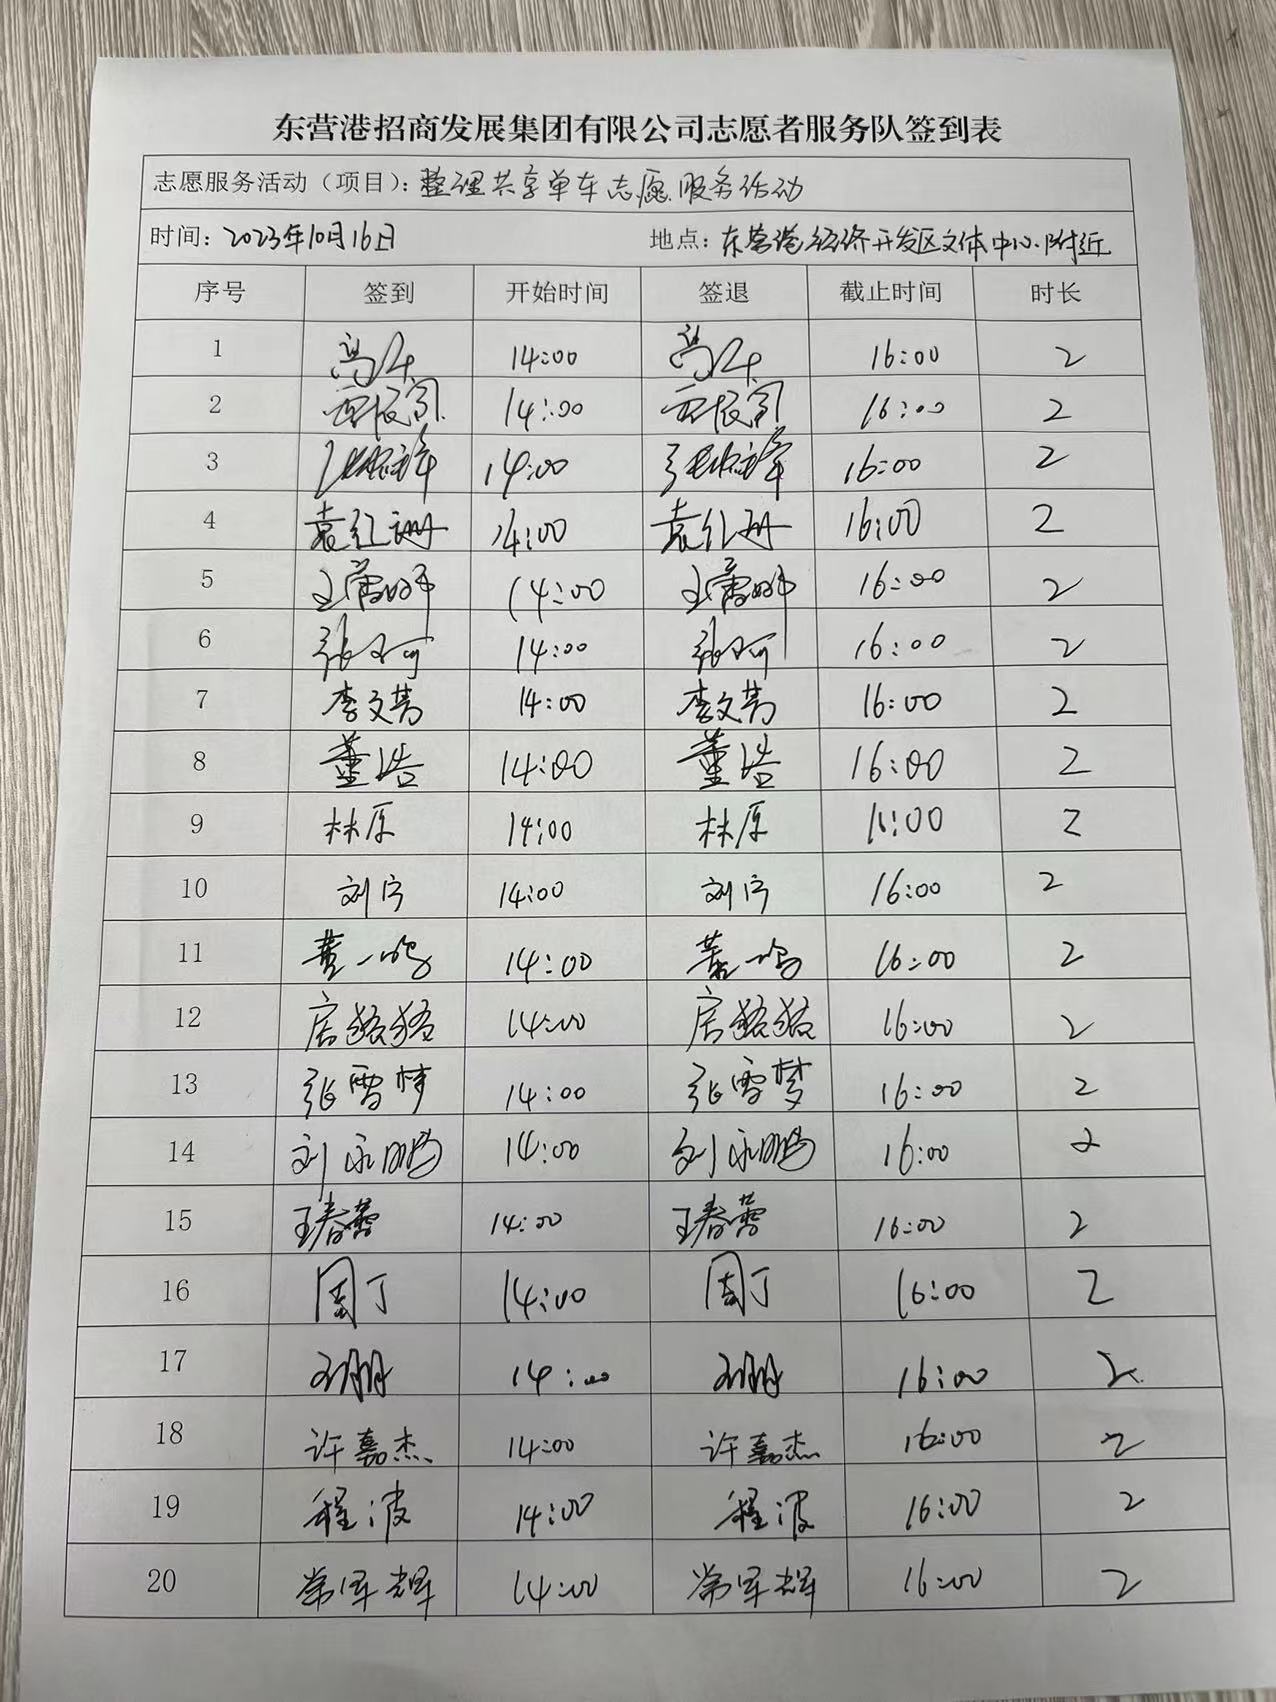 东营港招商发展集团有限公司志愿者服务队签到表
志愿服务活动（项目）：整理共享单车志愿服务活动
时间：2023年10月16日 地点：东营港经济开发区文体中心附近
序号 签到 开始时间 签退 截止时间 时长
1 14:00 16:00 2
2 14:00 16:00 2
3 14:00 16:00 2
4 袁红珊 14:00 袁红珊 16:00 2
5 14:00 16:00 2
6 14:00 16:00 2
7 李文菁 14:00 李文菁 16:00 2
8 董浩 14:00 董浩 16:00 2
9 林原 14:00 林原 16:00 2
10 刘宁 14:00 刘宁 16:00 2
11 董一鸣 14:00 董一鸣 16:00 2
12 14:00 16:00 2
13 张雪梦 14:00 张雪梦 16:00 2
14 刘永鹏 14:00 刘永鹏 16:00 2
15 王春蕾 14:00 王春蕾 16:00 2
16 周丁 14:00 周丁 16:00 2
17 14:00 16:00 2
18 许嘉杰 14:00 许嘉杰 16:00 2
19 程波 14:00 程波 16:00 2
20 常军辉 14:00 常军辉 16:00 2